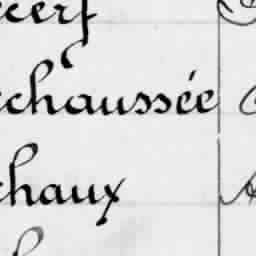 cerf
chaussée
chaux